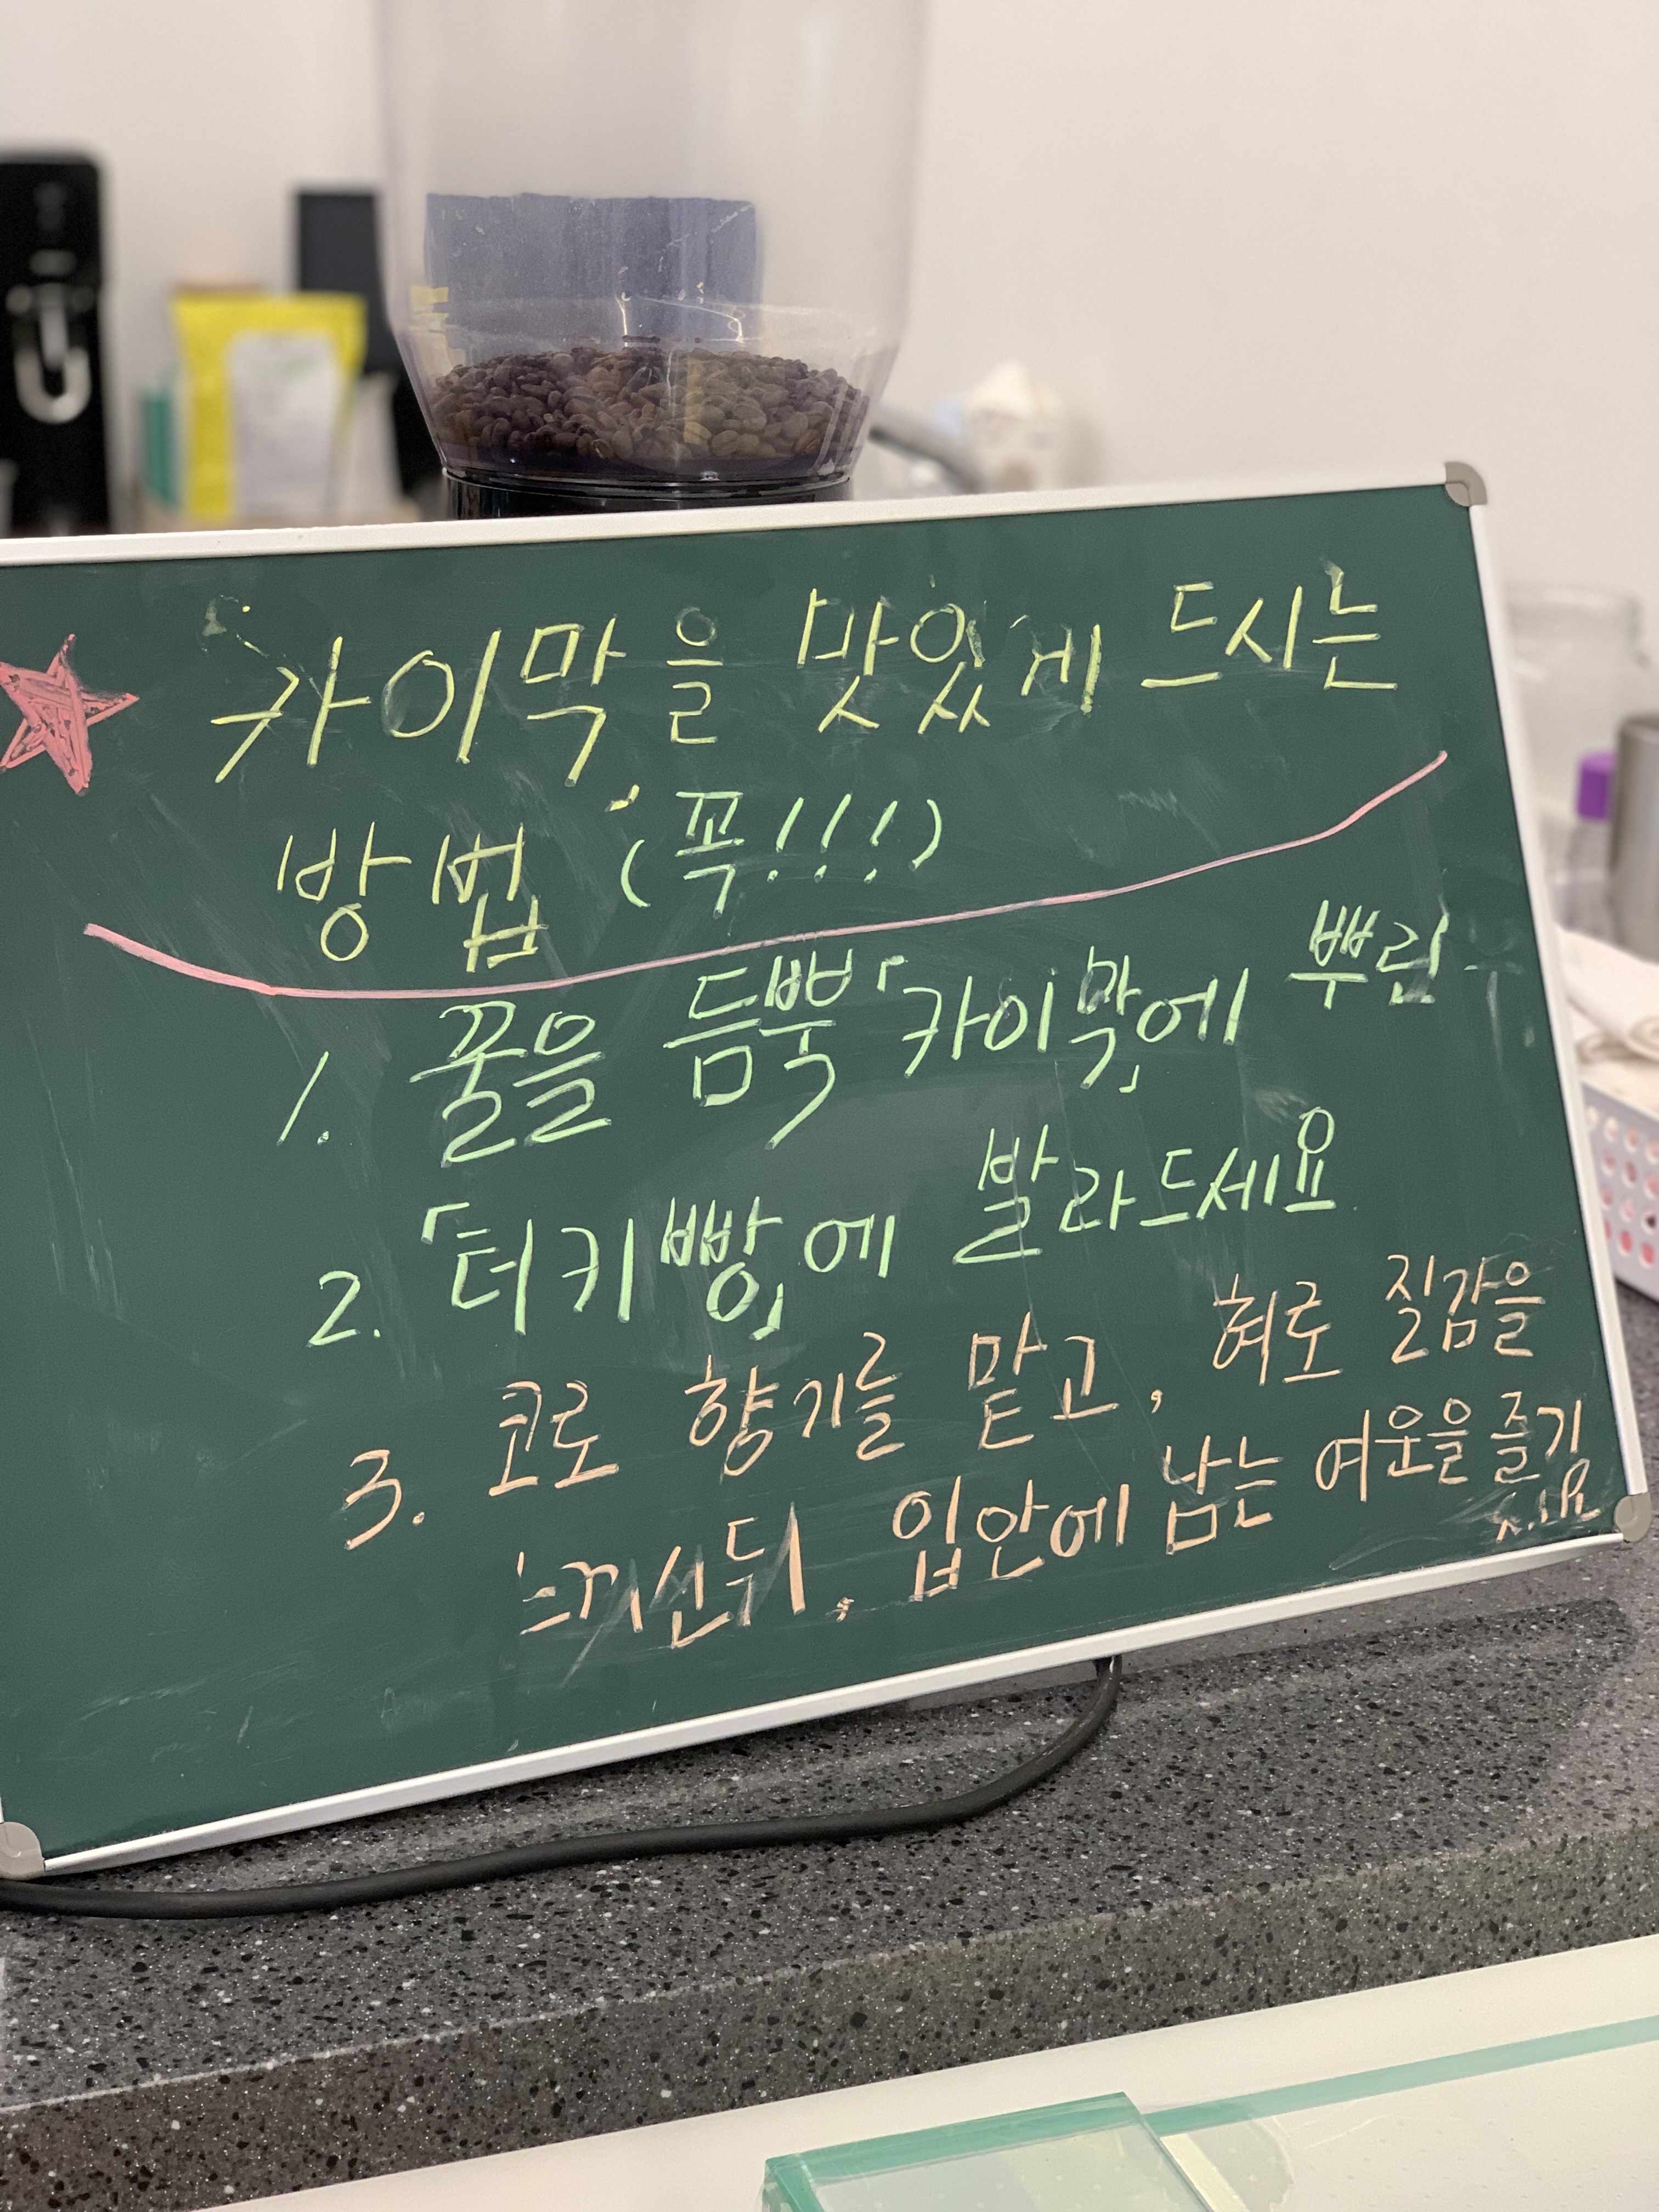 카이막을 맛있게 드시는
방법 (꼭!!!)
1. 꿀을 듬뿍 「카이막」에 뿌린
2. 「터키빵」에 발라드세요
3. 코로 향기를 맡고, 혀로 질감을
느끼신뒤, 입안에 남는 여운을 즐기